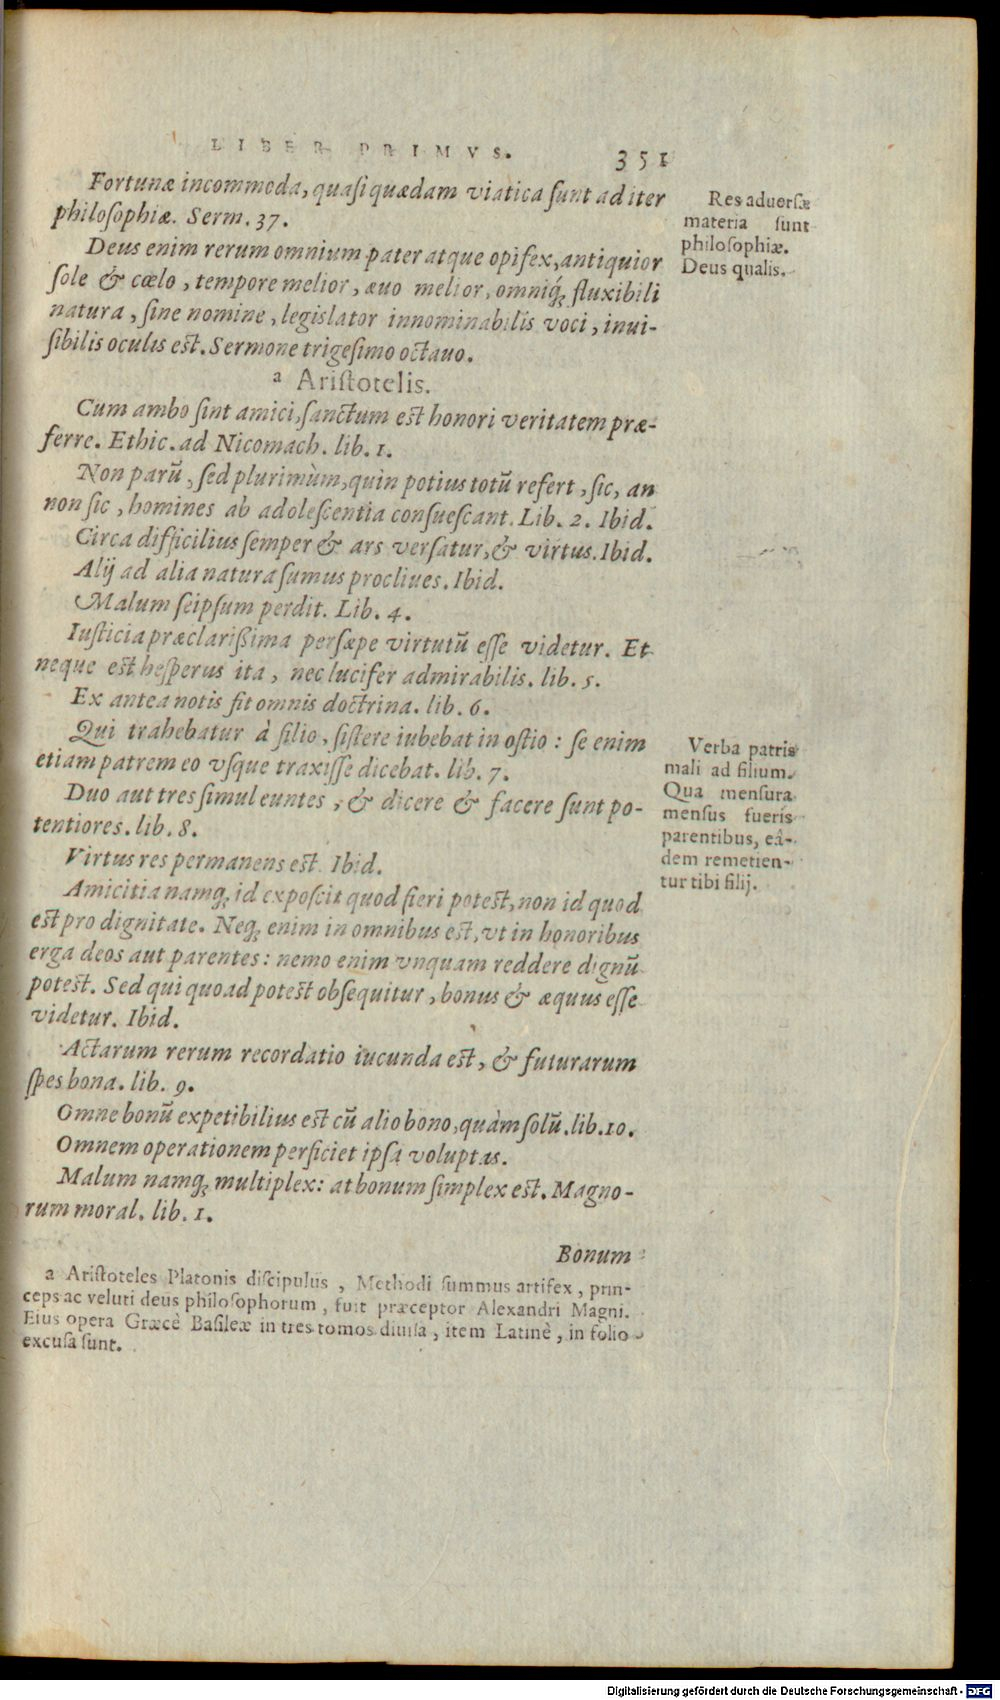 LIBER PRIMVS. 351
Fortunæ incommoda, quasi quædam viatica sunt ad iter
philosophiæ. Serm. 37.
Deus enim rerum omnium pater atque opifex, antiquior
sole & cœlo, tempore melior, æuo melior, omniq́; fluxibili
natura, sine nomine, legislator innominabilis voci, inui-
sibilis oculis est. Sermone trigesimo octauo.
a Aristotelis.
Cum ambo sint amici, sanctum est honori veritatem præ-
ferre. Ethic. ad Nicomach. lib. 1.
Non parũ, sed plurimùm, quin potius totũ refert, sic, an
non sic, homines ab adolescentia consuescant. Lib. 2. Ibid.
Circa difficilius semper & ars versatur, & virtus. Ibid.
Alij ad alia natura sumus procliues. Ibid.
Malum seipsum perdit. Lib. 4.
Iusticia præclarißima persæpe virtutũ esse videtur. Et
neque est hesperus ita, nec lucifer admirabilis. lib. 5.
Ex antea notis fit omnis doctrina. lib. 6.
Qui trahebatur à filio, sistere iubebat in ostio: se enim
etiam patrem eo vsque traxisse dicebat. lib. 7.
Duo aut tres simul euntes, & dicere & facere sunt po-
tentiores. lib. 8.
Virtus res permanens est. Ibid.
Amicitia namq; id exposcit quod fieri potest, non id quod
est pro dignitate. Neq; enim in omnibus est, vt in honoribus
erga deos aut parentes: nemo enim vnquam reddere dignũ
potest. Sed qui quoad potest obsequitur, bonus & æquus esse
videtur. Ibid.
Actarum rerum recordatio iucunda est, & futurarum
spes bona. lib. 9.
Omne bonũ expetibilius est cũ alio bono, quàm solũ. lib. 10.
Omnem operationem perficiet ipsa voluptas.
Malum namq; multiplex: at bonum simplex est. Magno-
rum moral. lib. 1.
Bonum
a Aristoteles Platonis discipulus, Methodi summus artifex, prin-
ceps ac veluti deus philosophorum, fuit præceptor Alexandri Magni.
Eius opera Græcè Basileæ in tres tomos diuisa, item Latinè, in folio
excusa sunt.
Res aduersæ
materia sunt
philosophiæ.
Deus qualis.
Verba patris
mali ad filium.
Qua mensura
mensus fueris
parentibus, eâ-
dem remetien-
tur tibi filij.
Digitalisierung gefördert durch die Deutsche Forschungsgemeinschaft - DFG